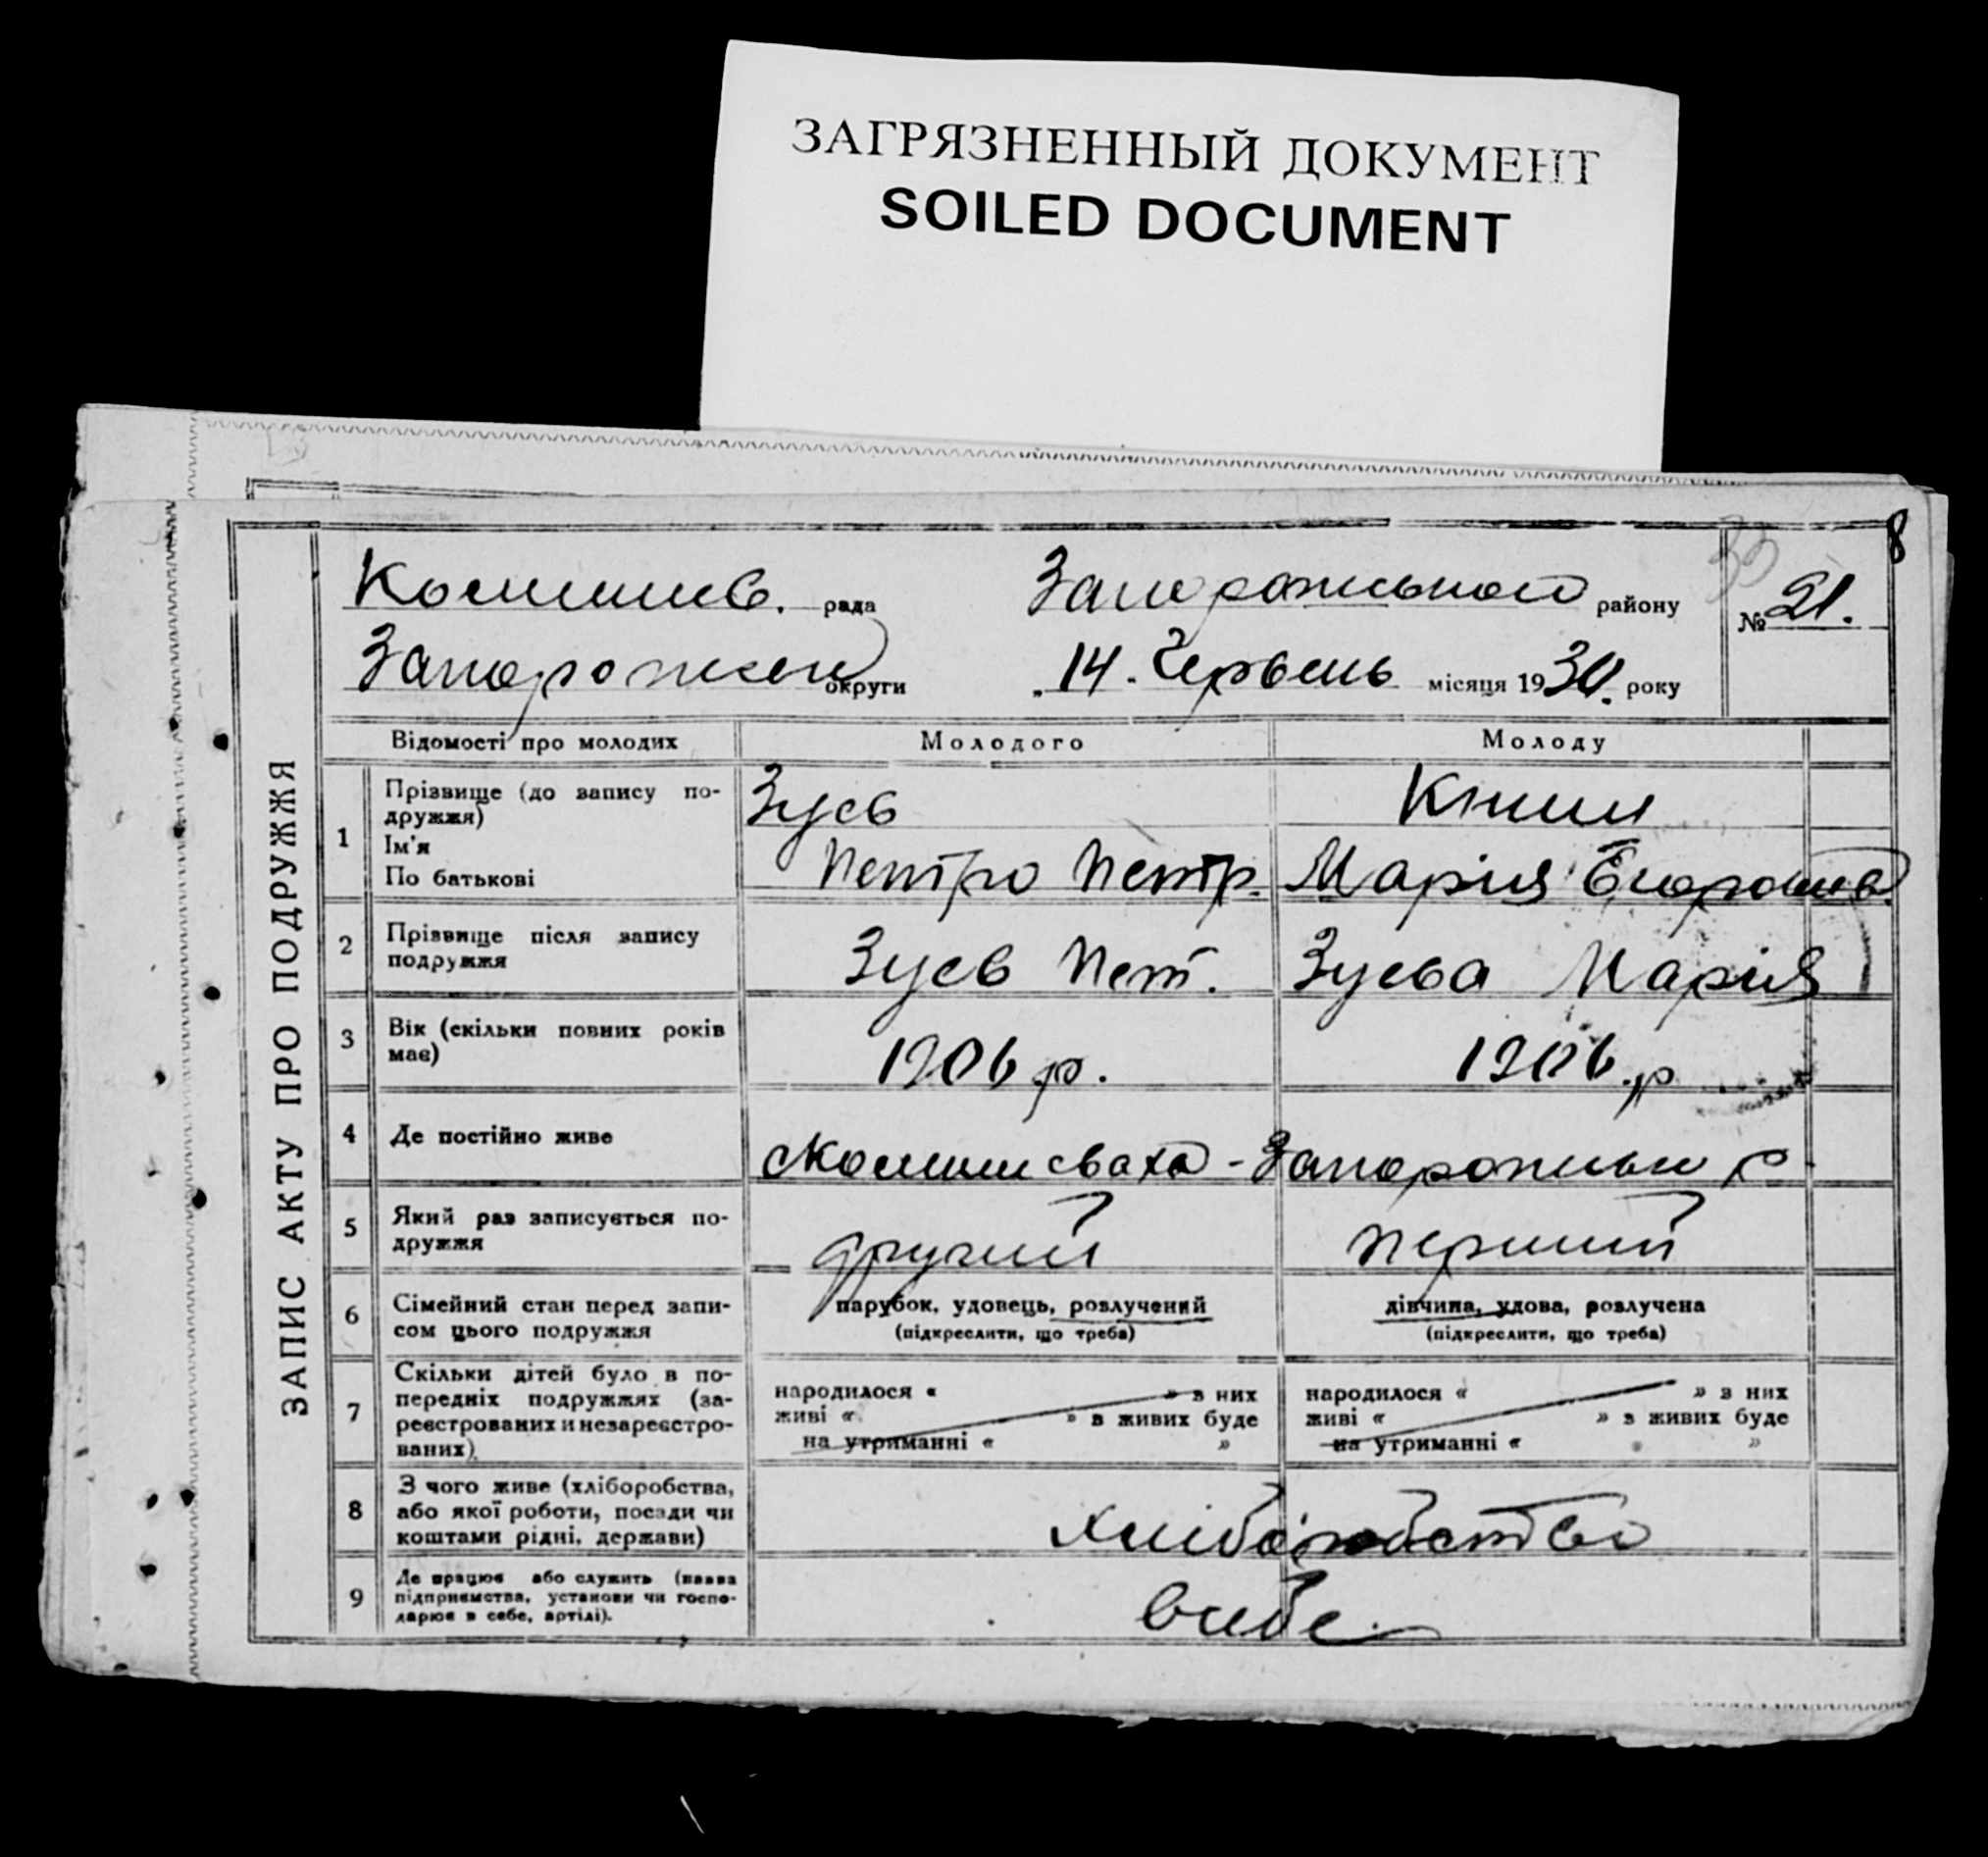 ЗАГРЯЗНЕННЫЙ ДОКУМЕНТ
SOILED DOCUMENT
8
ЗАПИС АКТУ ПРО ПОДРУЖЖЯ
Комишув. рада Запорожського району № 21.
Запорожськ округи „ 14 . Червень місяця 1930. року
Відомості про молодих Молодого Молоду
1 Прізвище (до запису подружжя) Зуєв Книш
Ім'я
По батькові Петро Петр. Марія Єгоровна
2 Прізвище після запису подружжя Зуєв Пет. Зуєва Марія
3 Вік (скільки повних років має) 1906 р. 1906 р
4 Де постійно живе с Комишеваха - Запорожськ р
5 Який раз записується подружжя другий перший
6 Сімейний стан перед записом цього подружжя парубок, удовець, розлучений дівчина, удова, розлучена
(підкреслити, що треба) (підкреслити, що треба)
7 Скільки дітей було в попередніх подружжях (зареєстрованих и незареєстрованих)
народилося « » з них народилося « » з них
живі « » в живих буде живі « » з живих буде
на утриманні « » на утриманні « »
8 З чого живе (хліборобства, або якої роботи, посади чи коштами рідні, держави) хліборобство
9 Де працює або служить (назва підприємства, установи чи господарює в себе, артілі). в себе